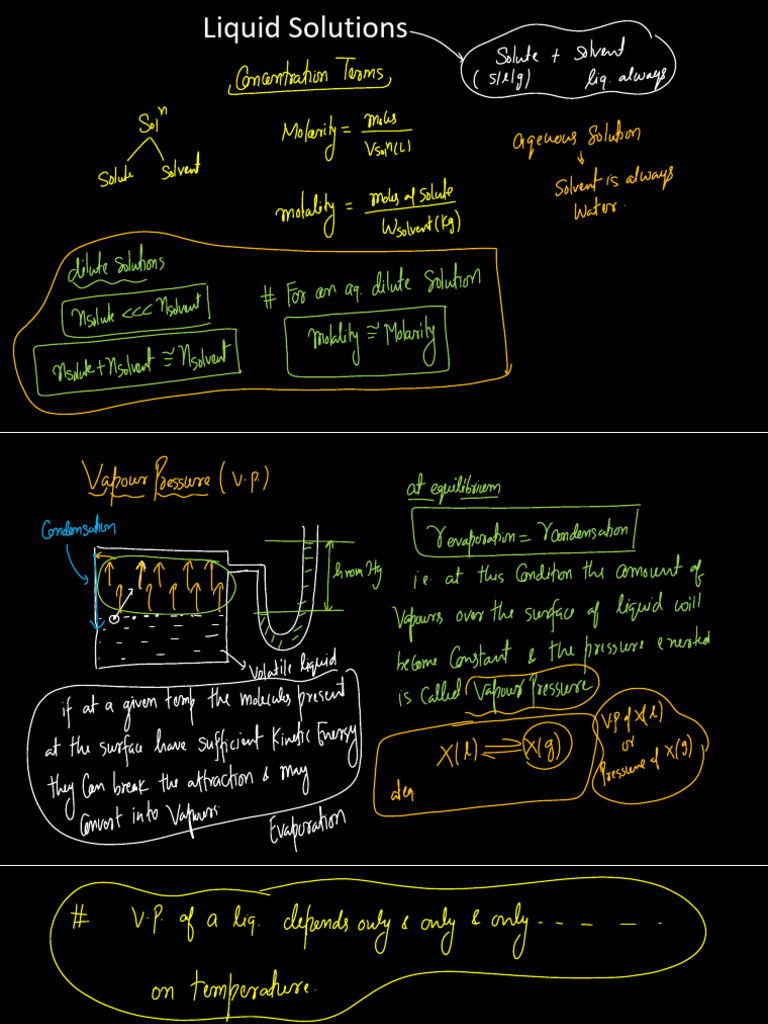 Liquid Solutions
Solute + Solvent
(s/l/g) liq. always
Concentration Terms
Solⁿ
Solute Solvent
Molarity = moles / Vsolⁿ(L)
molality = moles of Solute / Wsolvent(kg)
aqeuous Solution
↓
Solvent is always
Water.
dilute Solutions
nsolute <<< nsolvent
nsolute + nsolvent ≅ nsolvent
# For an aq. dilute Solution
molality ≅ Molarity
Vapour Pressure (V.P.)
Condensation
h mm Hg
Volatile liquid
if at a given temp the molecules present
at the surface have sufficient Kinetic Energy
they Can break the attraction & may
Convert into Vapours.
Evaporation
at equilibrium
r evaporation = r condensation
i.e. at this Condition the amount of
Vapours over the surface of liquid will
become Constant & the pressure exerted
is Called Vapour Pressure
X(l) ⇌ X(g)
ateq
V.P. of X(l)
or
Pressure of X(g)
# V.P. of a liq. depends only & only & only - - - - -
on temperature.